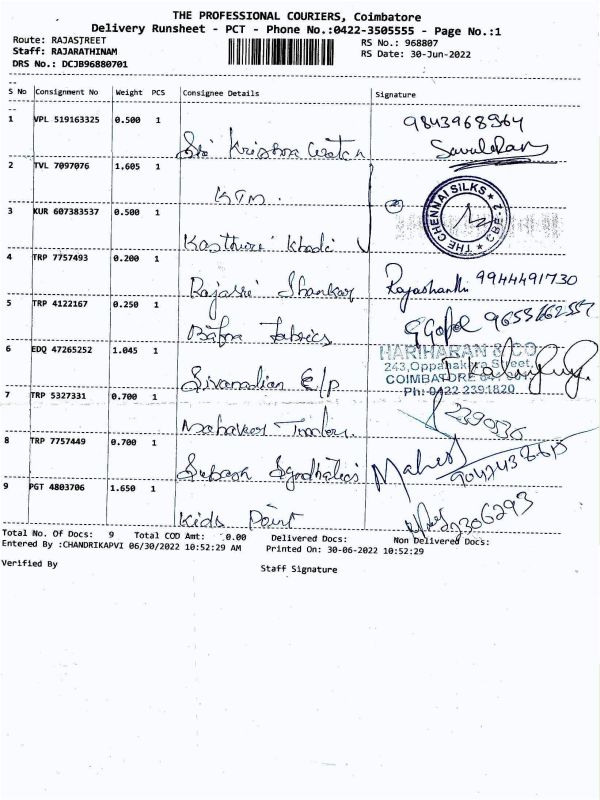 THE PROFESSIONAL COURIERS, Coimbatore
Delivery Runsheet - PCT - Phone No.:0422-3505555 - Page No.:1
Route: RAJASTREET
RS No.: 968807
Staff: RAJARATHINAM
RS Date: 30-Jun-2022
DRS No.: DCJB96880701
S No Consignment No Weight PCS Consignee Details Signature
1 VPL 519163325 0.500 1 9843968964
Sri Krishna Watch
2 TVL 7097076 1.605 1
KTM.
THE CHENNAI SILKS * CBE-2 *
3 KUR 607383537 0.500 1
Kasthuri Khadi
4 TRP 7757493 0.200 1
Rajasri Shankar Rajashanthi 9944491730
5 TRP 4122167 0.250 1
Fabrics G Gopal
6 EDQ 47265252 1.045 1 HARIHARAN & CO
243,Oppanakkara Street,
COIMBATORE
Sivanadian E/P
Ph: 0422 2391820
7 TRP 5327331 0.700 1
8 TRP 7757449 0.700 1
Mahesh
Subash
9 PGT 4803706 1.650 1
Kids Point
Total No. Of Docs: 9 Total COD Amt: 0.00 Delivered Docs: Non Delivered Docs:
Entered By :CHANDRIKAPVI 06/30/2022 10:52:29 AM Printed On: 30-06-2022 10:52:29
Verified By
Staff Signature